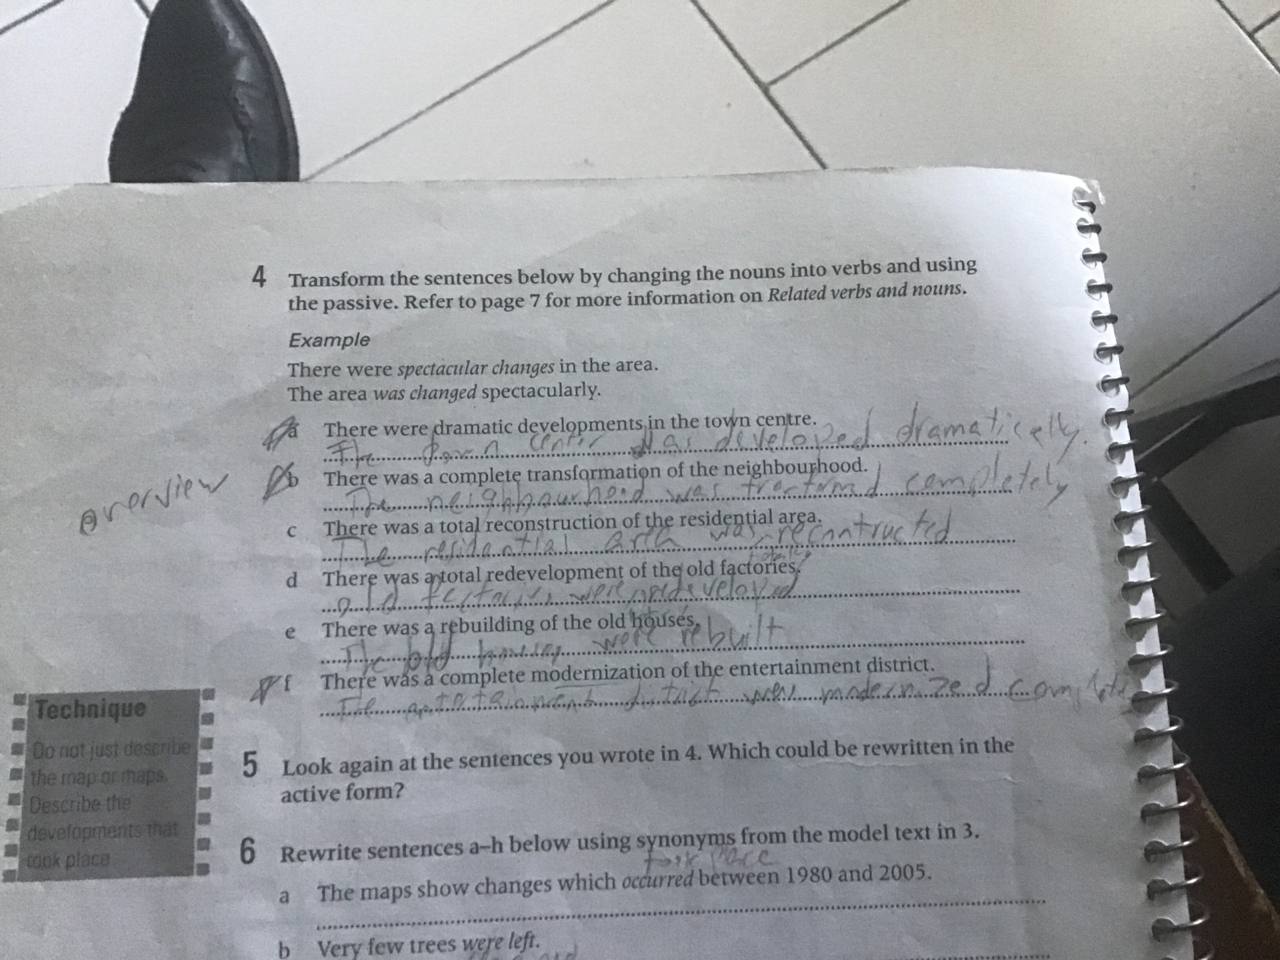 4 Transform the sentences below by changing the nouns into verbs and using
the passive. Refer to page 7 for more information on Related verbs and nouns.
Example
There were spectacular changes in the area.
The area was changed spectacularly.
a There were dramatic developments in the town centre.
The town center was developed dramatically.
overview
b There was a complete transformation of the neighbourhood.
The neighbourhood was completely
c There was a total reconstruction of the residential area.
The residential area was recontructed
d There was a total redevelopment of the old factories.
totally
old were redeveloped
e There was a rebuilding of the old houses.
The old were rebuilt
f There was a complete modernization of the entertainment district.
The was modernized
Technique
Do not just describe
the map or maps.
Describe the
developments that
took place
5 Look again at the sentences you wrote in 4. Which could be rewritten in the
active form?
6 Rewrite sentences a–h below using synonyms from the model text in 3.
took place
a The maps show changes which occurred between 1980 and 2005.
b Very few trees were left.